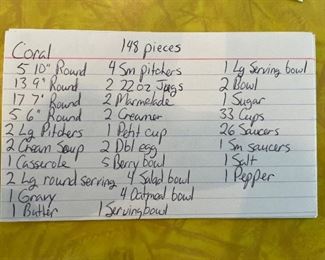 Coral 148 pieces
5 10" Round 4 Sm pitchers 1 Lg Serving bowl
13 9" Round 2 22oz Jugs 2 Bowl
17 7" Round 2 Marmelade 1 Sugar
5 6" Round 2 Creamer 33 Cups
2 Lg Pitchers 1 Petit cup 26 Saucers
2 Cream Soup 2 Dbl egg 1 Sm saucers
1 Casserole 5 Berry bowl 1 Salt
2 Lg round serving 4 Salad bowl 1 Pepper
1 Gravy 4 Oatmeal bowl
1 Butter 1 Serving bowl